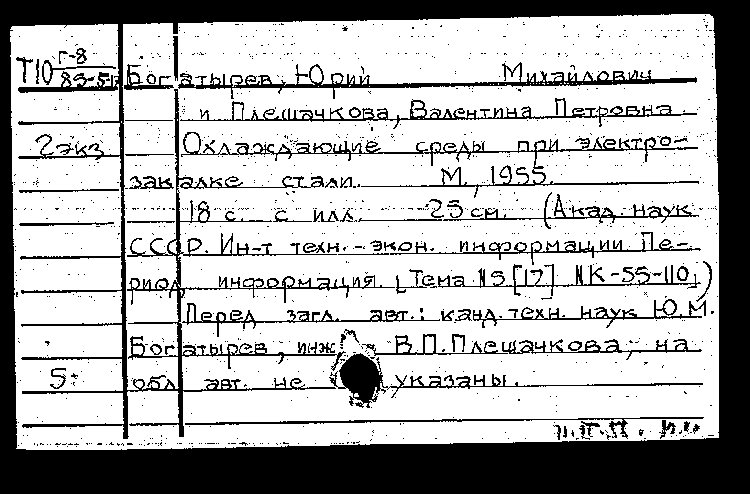 Т10 Г-8
83-51
Богатырев, Юрий Михайлович
и Плешачкова, Валентина Петровна
2 экз Охлаждающие среды при электро-
закалке стали. М., 1955.
18 с. с илл. 25 см. (Акад. наук
СССР. Ин-т техн.-экон. информации. Пе-
риод. информация. [Тема №5 [17] №К-55-110])
Перед загл. авт.: канд. техн. наук Ю.М.
Богатырев, инж. В.П. Плешачкова; на
5: обл. авт. не указаны.